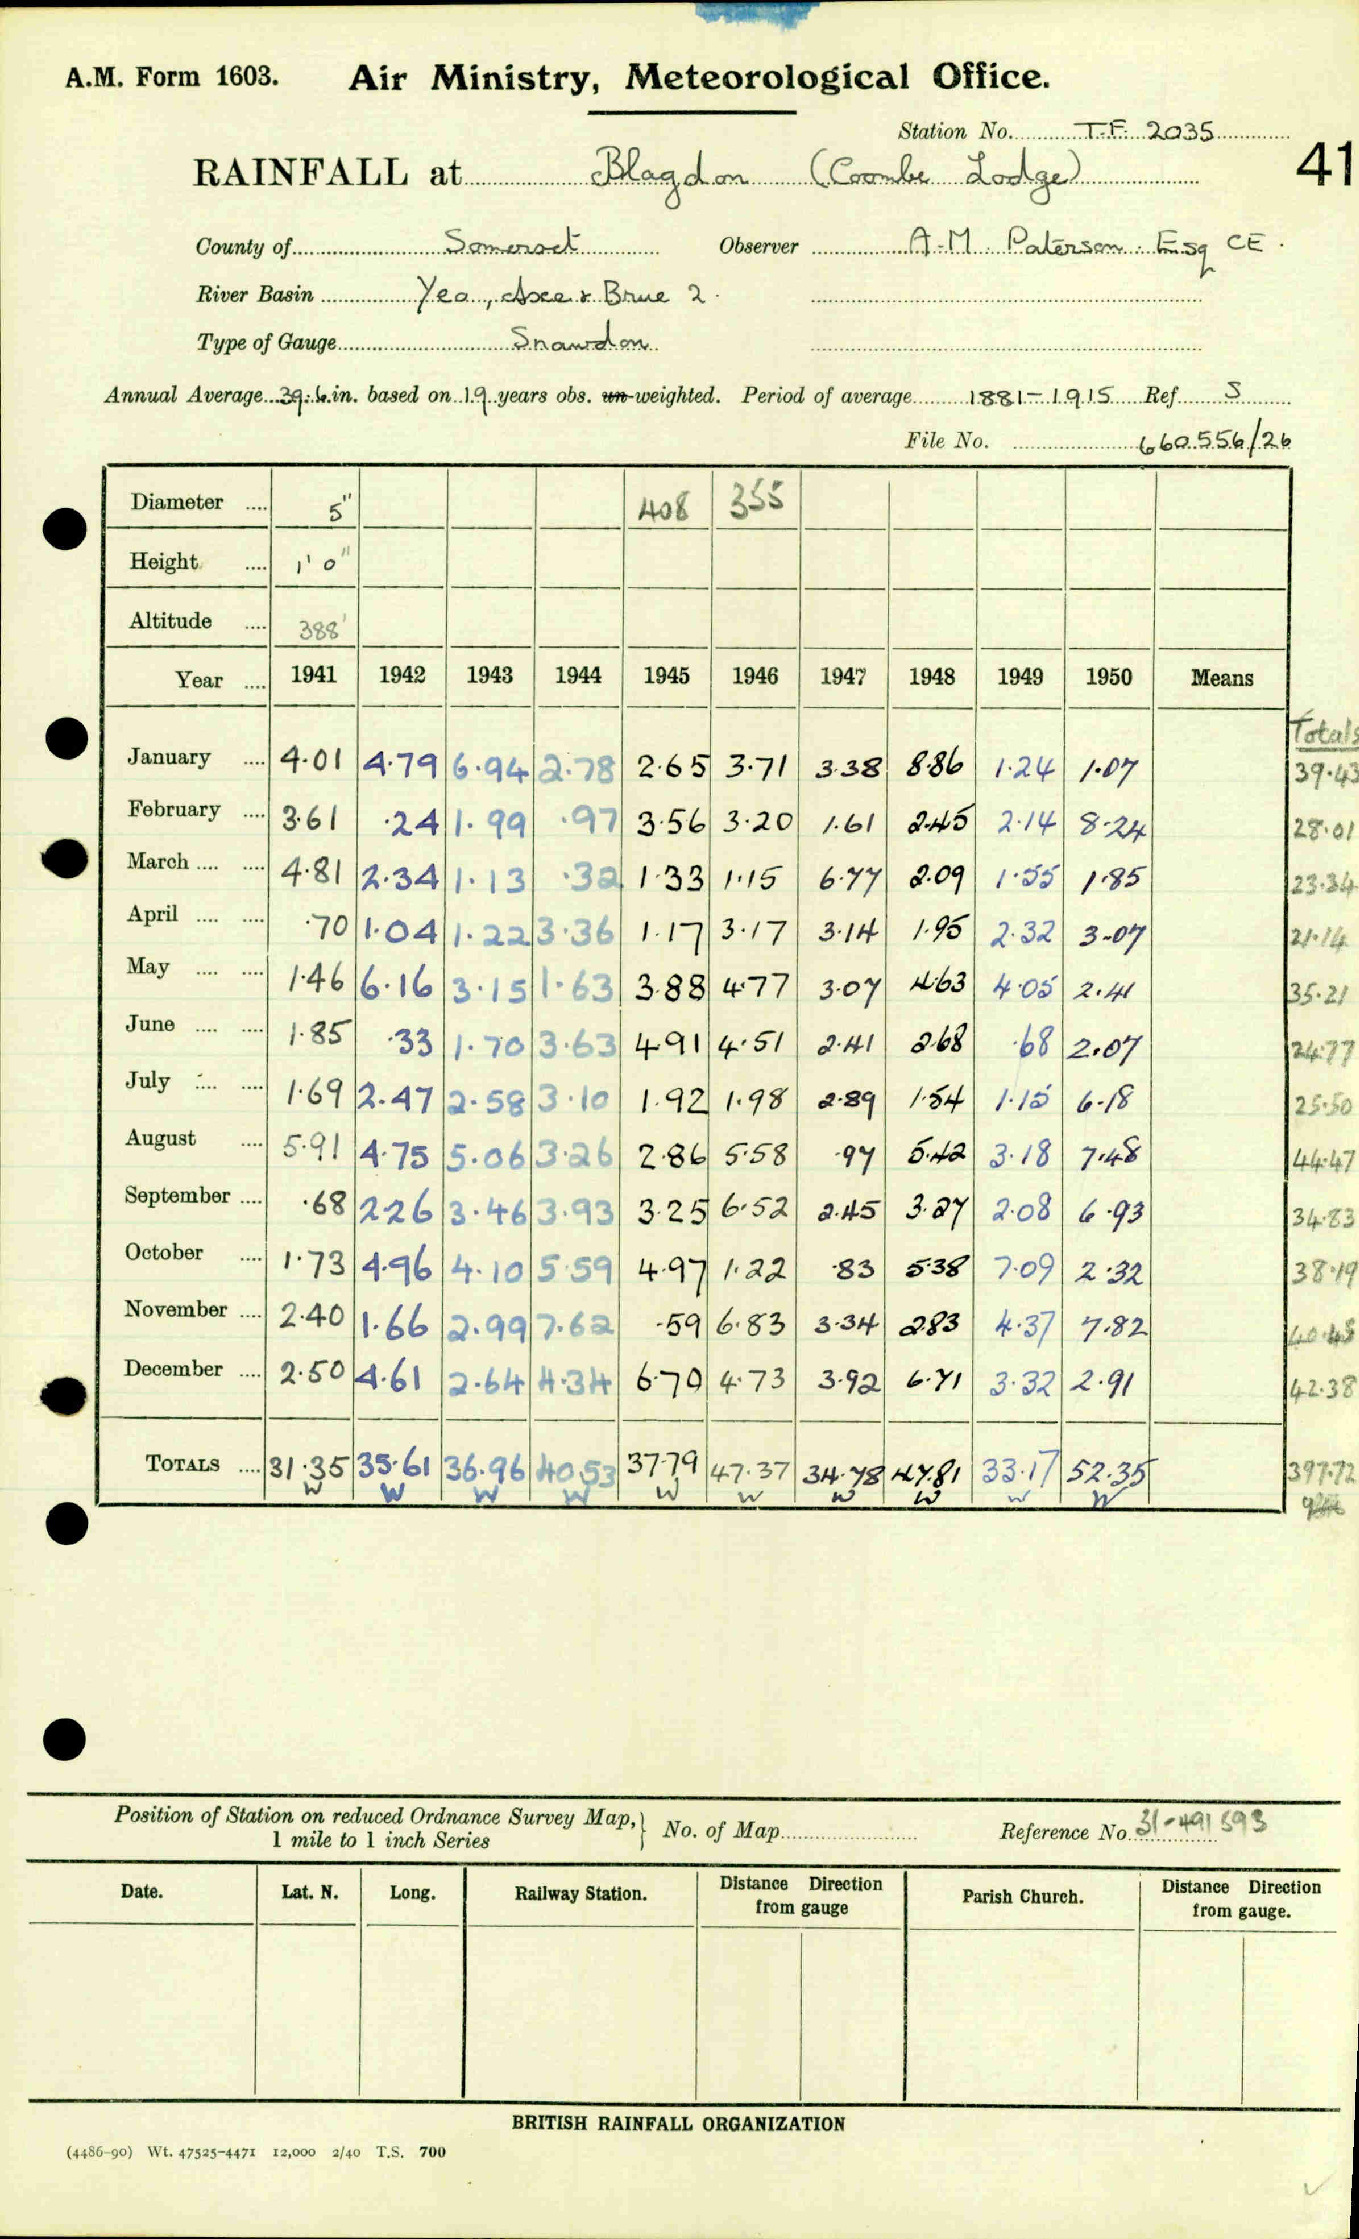 A.M. Form 1603. Air Ministry, Meteorological Office.
Station No. T.F. 2035
RAINFALL at Blagdon (Coombe Lodge) 41
County of Somerset Observer A.M. Paterson. Esq CE.
River Basin Yeo, Axe & Brue 2.
Type of Gauge Snowdon
Annual Average 39.6 in. based on 19 years obs. un-weighted. Period of average 1881-1915 Ref S
File No. 660556/26
Diameter .... 5" 408 355
Height .... 1' 0"
Altitude .... 388'
Year .... 1941 1942 1943 1944 1945 1946 1947 1948 1949 1950 Means
Totals
January .... 4.01 4.79 6.94 2.78 2.65 3.71 3.38 8.86 1.24 1.07 39.43
February .... 3.61 .24 1.99 .97 3.56 3.20 1.61 2.45 2.14 8.24 28.01
March .... .... 4.81 2.34 1.13 .32 1.33 1.15 6.77 2.09 1.55 1.85 23.34
April .... .... .70 1.04 1.22 3.36 1.17 3.17 3.14 1.95 2.32 3.07 21.14
May .... .... 1.46 6.16 3.15 1.63 3.88 4.77 3.07 4.63 4.05 2.41 35.21
June .... .... 1.85 .33 1.70 3.63 4.91 4.51 2.41 2.68 .68 2.07 24.77
July .... .... 1.69 2.47 2.58 3.10 1.92 1.98 2.89 1.54 1.15 6.18 25.50
August .... 5.91 4.75 5.06 3.26 2.86 5.58 .97 5.42 3.18 7.48 44.47
September .... .68 2.26 3.46 3.93 3.25 6.52 2.45 3.27 2.08 6.93 34.83
October .... 1.73 4.96 4.10 5.59 4.97 1.22 .83 5.38 7.09 2.32 38.19
November .... 2.40 1.66 2.99 7.62 .59 6.83 3.34 2.83 4.37 7.82 40.45
December .... 2.50 4.61 2.64 4.34 6.70 4.73 3.92 6.71 3.32 2.91 42.38
TOTALS .... 31.35 35.61 36.96 40.53 37.79 47.37 34.78 47.81 33.17 52.35 397.72
W W W W W W W W W W
Position of Station on reduced Ordnance Survey Map, 1 mile to 1 inch Series } No. of Map Reference No. 31-491593
Date. Lat. N. Long. Railway Station. Distance Direction from gauge Parish Church. Distance Direction from gauge.
BRITISH RAINFALL ORGANIZATION
(4486-90) Wt. 47525-4471 12,000 2/40 T.S. 700